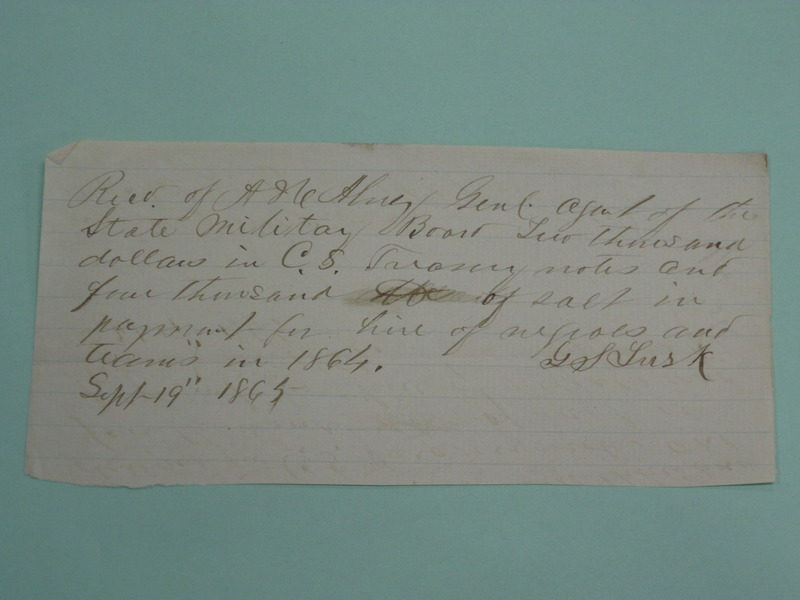 Recd. of A H Abney Genl. agent of the
State Military Board Two thousand
dollars in C.S. Treasury notes and
four thousand lbs of salt in
payment for hire of negroes and
teams in 1864. G S Lusk
Sept 19" 1865